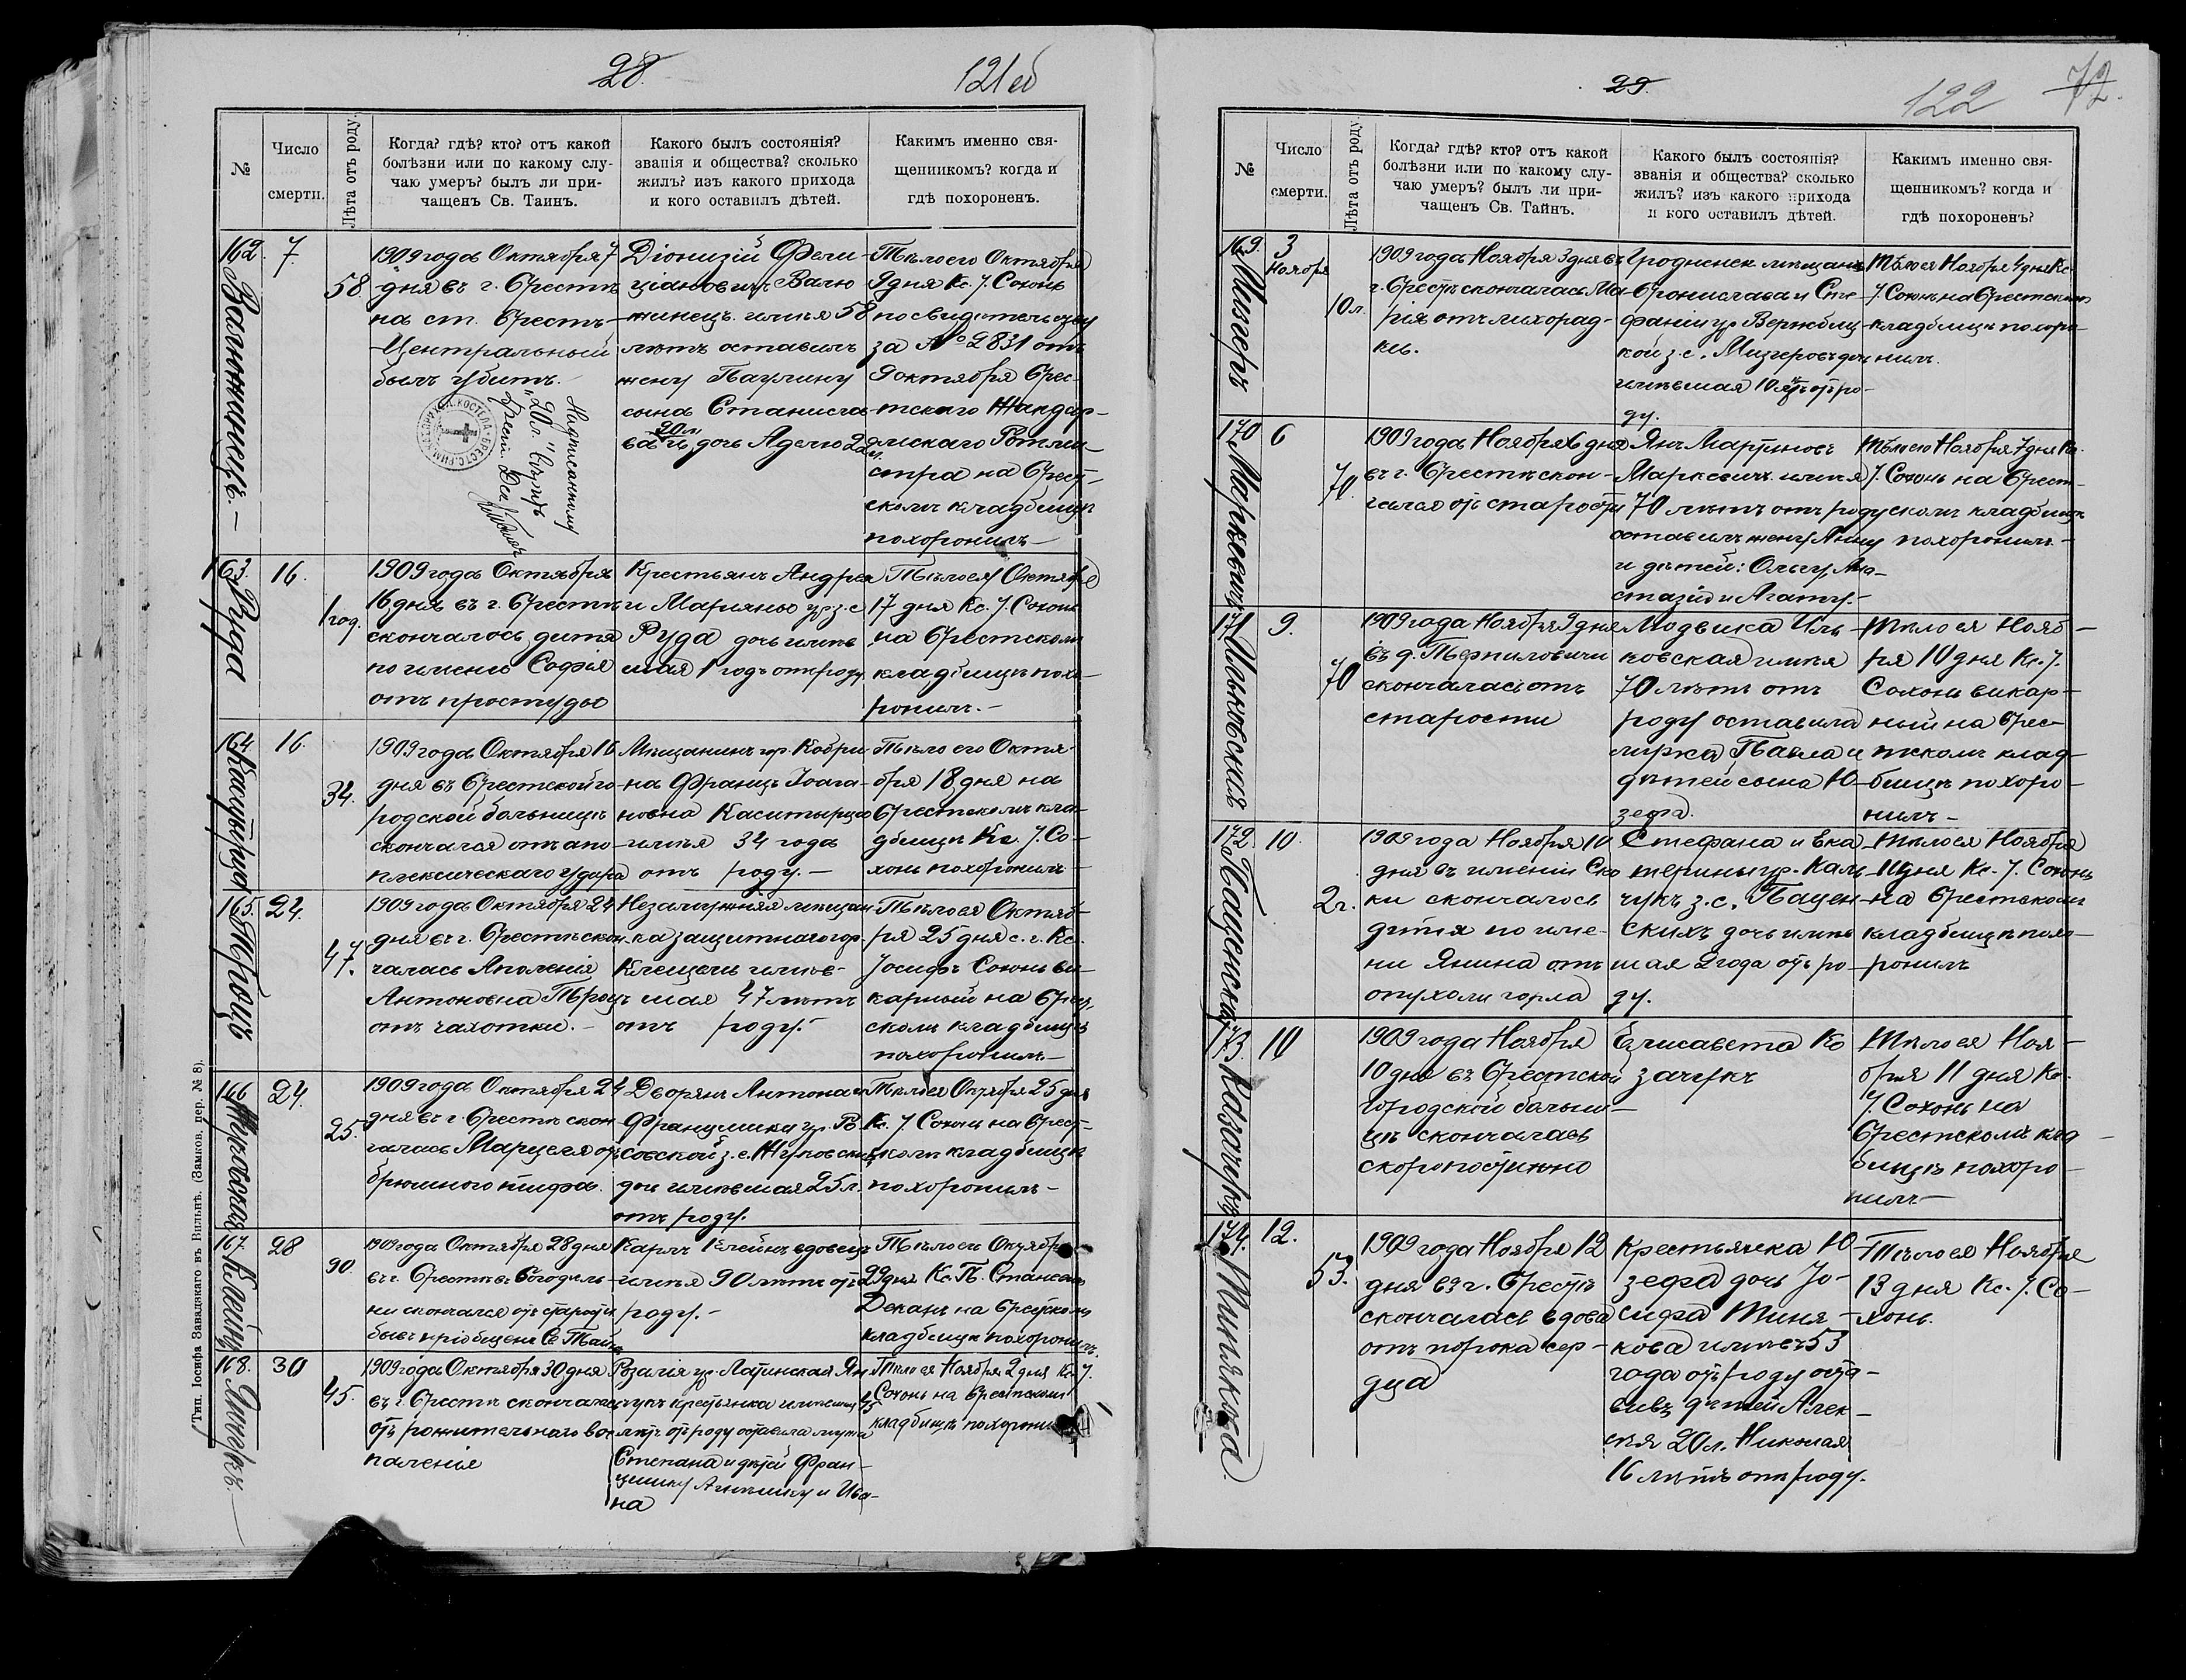 28.
121 об
№
Число
смерти.
Лѣта отъ роду.
Когда? гдѣ? кто? отъ какой
болѣзни или по какому слу-
чаю умеръ? былъ ли при-
чащенъ Св. Таинъ.
Какого былъ состоянія?
званія и общества? сколько
жилъ? изъ какого прихода
и кого оставилъ дѣтей.
Какимъ именно свя-
щенникомъ? когда и
гдѣ похороненъ.
162.
Валюжинецъ.
7.
58
1909 года Октября 7
дня въ г. Брестѣ
на ст. Брестъ-
Центральный
былъ убитъ.
Діонизій Фели-
ціановичъ Валю
жинецъ имѣя 58
лѣтъ оставилъ
жену Паулину
сына Станисла-
ва 20 л. и дочь Аделю 22 л.
Тѣло его Октября
9 дня Кс. І. Сохонь
по свидѣтельству
за № 2831 отъ
9 октября Брес-
тскаго Жандар-
мскаго Ротми-
стра на Брест-
скомъ кладбищѣ
похоронилъ-
Надписанному
"20 л." вѣрить
163.
Руда
16.
1 год.
1909 года Октября
16 дня въ г. Брестѣ
скончалось дитя
по имени Софія
отъ простуды
Крестьянъ Андрея
и Марянны ур з. с
Руда дочь имѣв
шая 1 годъ отъ роду
Тѣло ея Октябр
17 дня Кс. І. Сохонь
на Брестскомъ
кладбищѣ похо-
ронилъ.-
164
16.
34.
1909 года Октября 16
дня въ Брестской го-
родской больницѣ
скончался отъ апо-
плексическаго удара
Мѣщанинъ гор. Кобри-
на Францъ
имѣя 34 года
отъ роду.-
Тѣло его Октя-
бря 18 дня на
Брестскомъ кла-
дбищѣ Кс. І. Со-
хонь похоронилъ
165.
Троцъ
24.
47.
1909 года Октября 24
дня въ г. Брестѣ скон-
чалась Аполенія
Антоновна Троцъ
отъ чахотки.-
Незамужняя мѣщан-
ка заштатнаго гор.
Клещель имѣв-
шая 47 лѣтъ
отъ роду.-
Тѣло ея Октяб-
ря 25 дня с. г. Кс.
Іосифъ Сохонь ви-
карный на Брест-
скомъ кладбищѣ
похоронилъ-
166
Жуковская
24.
25.
1909 года Октября 24
дня въ г. Брестѣ скон-
чалась Марцеля отъ
брюшного тифа.
Дворянъ Антона и
Францишки ур.
з. с. Жуковских
дочь имѣвшая 25 л.
отъ роду.
Тѣло ея Октября 25 дня
Кс. І Сохонь на Брест-
скомъ кладбищѣ
похоронилъ-
167.
Клейнъ
28
90.
1909 года Октября 28 дня
въ г. Брестѣ въ богодѣль-
ни скончался отъ старости
бывъ пріобщенъ Св Тайнъ
Карлъ Клейнъ вдовецъ
имѣя 90 лѣтъ отъ
роду.-
Тѣло его Октября
29 дня Кс. П.
Деканъ на Брестскомъ
кладбищѣ похоронилъ.
168.
30
45.
1909 года Октября 30 дня
въ г. Брестѣ скончалась
отъ рожительнаго вос-
паленія
Розалія ур. Латинская Ян
чукъ крестьянка имѣвшая 45
лѣтъ отъ роду оставила мужа
Степана и дѣтей Фран-
цишку и Ива-
на
Тѣло ея Ноября 2 дня Кс. І.
Сохонь на Брестскомъ
кладбищѣ похоронилъ
Тип. Іосифа Завадзкаго въ Вильнѣ. (Замков. пер. № 8).
29.
122
72.
№
Число
смерти.
Лѣта отъ роду.
Когда? гдѣ? кто? отъ какой
болѣзни или по какому слу-
чаю умеръ? былъ ли при-
чащенъ Св. Тайнъ.
Какого былъ состоянія?
званія и общества? сколько
жилъ? изъ какого прихода
и кого оставилъ дѣтей.
Какимъ именно свя-
щенникомъ? когда и
гдѣ похороненъ?
169.
Мизгеръ
3
Ноября
10 л.
1909 года Ноября 3 дня въ
г. Брестѣ скончалась Ма-
рія отъ лихорад-
ки.
Гродненск. мѣщанъ
Бронислава и Сте-
фаніи ур Вержбиц-
кой з. с. Мизгеровъ дочь
имѣвшая 10 лѣтъ отъ ро-
ду.
Тѣло ея Ноября 4 дня Кс.
І. Сохонь на Брестскомъ
кладбищѣ похоро-
нилъ.
170
Маркевичъ
6
70.
1909 года Ноября 6 дня
въ г. Брестѣ скон-
чался отъ старости
Янъ Мартиновъ
Маркевичъ имѣя
70 лѣтъ отъ роду
оставилъ жену Анну
и дѣтей: Ольгу, Ана-
стазію и Агату.-
Тѣло его Ноября 7 дня Кс.
І. Сохонь на Брест-
скомъ кладбищѣ
похоронилъ.-
171
Ильковская
9.
70
1909 года Ноября 9 дня
въ д. Терпиловичи
скончалась отъ
старости
Людвика Иль-
ковская имѣя
70 лѣтъ отъ
роду оставила
мужа Павла и
дѣтей сына Ю-
зефа.
Тѣло ея Нояб-
ря 10 дня Кс. І.
Сохонь викар-
ный на Брес-
тскомъ клад-
бищѣ похоро-
нилъ-
172.
Паценская
10.
2 г.
1909 года Ноября 10
дня въ имѣніи Ско
ки скончалось
дитя по име-
ни Янина отъ
опухоли горла
Стефана и Ека
терины ур. Каль
чукъ з. с. Пацен-
скихъ дочь имѣв
шая 2 года отъ ро-
ду.
Тѣло ея Ноября
11 дня Кс. І. Сохонь
на Брестскомъ
кладбищѣ похо-
ронилъ
173.
Козачукъ
10
1909 года Ноября
10 дня въ Брестской
городской больни-
цѣ скончалась
скоропостижно
Елисавета Ко
зачукъ
Тѣло ея Ноя-
бря 11 дня Кс.
І. Сохонь на
Брестскомъ клад-
бищѣ похоро-
нилъ-
174.
Тинякова
12.
53.
1909 года Ноября 12
дня въ г. Брестѣ
скончалась вдова
отъ порока сер-
дца
Крестьянка Ю
зефа дочь Іо-
сифа Тиня-
кова имѣя 53
года отъ роду оста-
вивъ дѣтей Алек-
сѣя 20 л. Николая
16 лѣтъ отъ роду.
Тѣло ея Ноября
13 дня Кс. І. Со-
хонь.